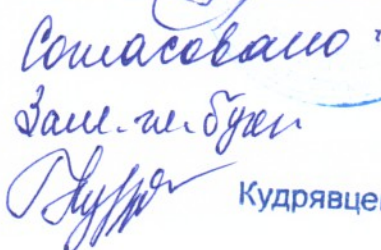 Согласовано
Зам. гл. бухг
Кудрявцев